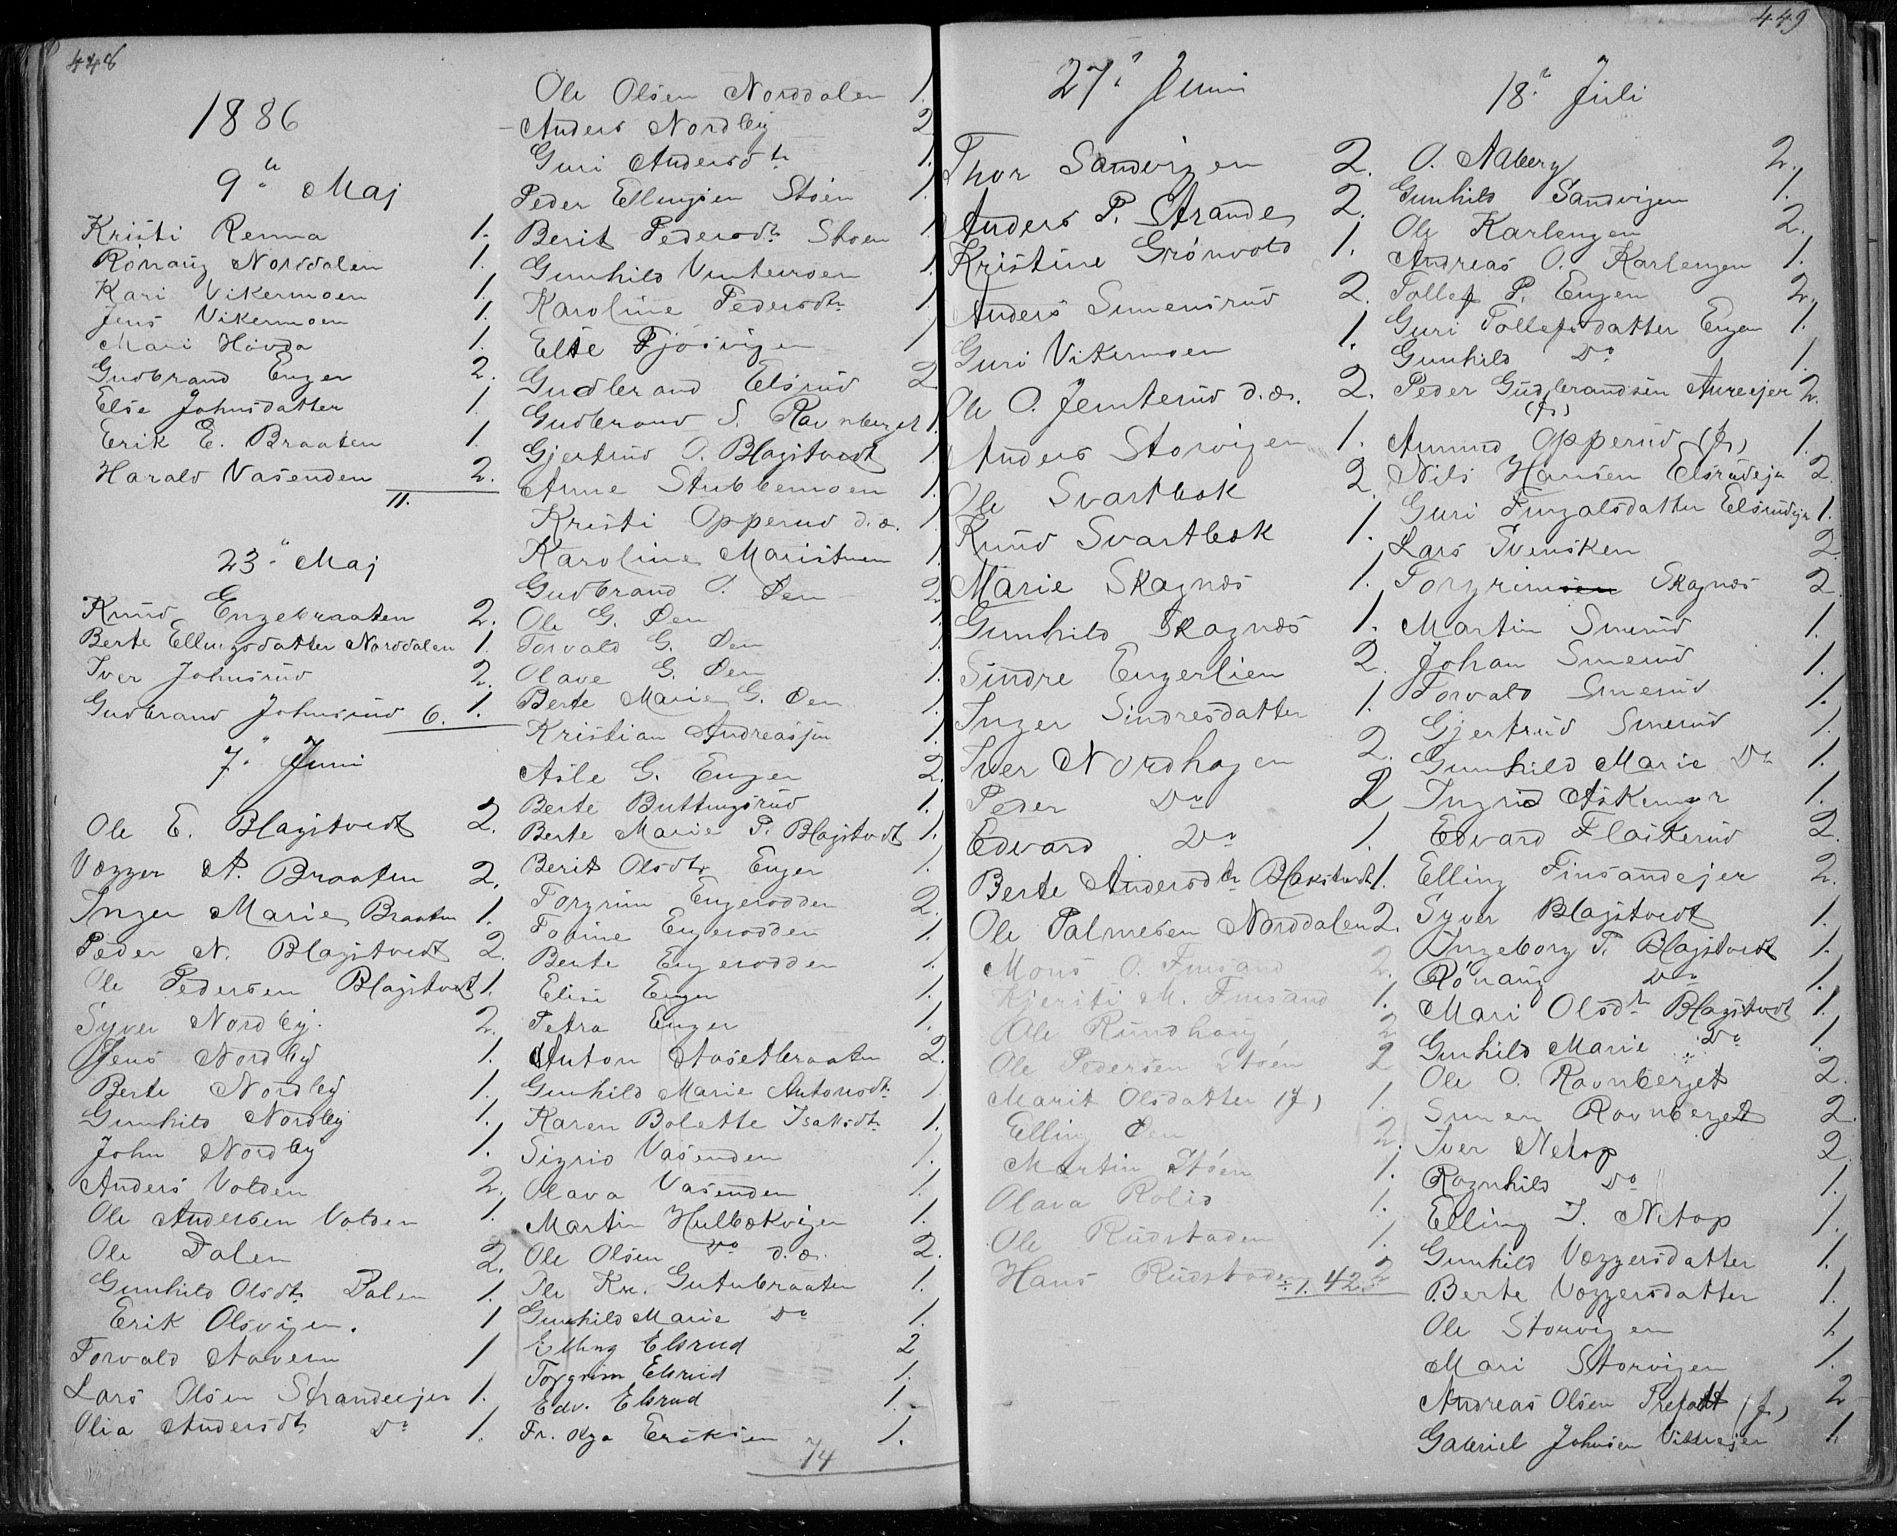 448
1886
9de Maj
Kristi Renna 1.
Rønaug Norddalen 1.
Kari Vikermoen 1.
Jens Vikermoen 1.
Mari Hovda 1.
Gudbrand Enger 2.
Else Johnsdatter 1.
Erik E. Braaten 1.
Harald Vasenden 2.
11.
23. Maj
Knud Engebraaten 2.
Berte Ellingsdatter Norddalen 1.
Iver Johnsrud 2.
Gudbrand Johnsrud 1.
6.
7. Juni
Ole E. Blagstvedt 2.
Vegger N. Braaten 2.
Inger Marie Braaten 1.
Peder N. Blagstvedt 2.
Ole Pedersen Blagstvedt 1.
Syver Nordby 2.
Jens Nordby 1.
Berte Nordby 1.
Gunhild Nordby 1.
John Nordby 1.
Anders Volden 2.
Ole Andersen Volden 1.
Ole Dalen 2.
Gunhild Olsdtr Dalen 1.
Erik Olsvigen. 1
Torvald Stavern 1
Lars Olsen Strandeejer 1.
Olia Andersdtr Do 1.
Ole Olsen Norddalen 1.
Anders Nordby 2
Guri Andersdtr 1.
Peder Ellingsen Støen 1.
Berit Pedersdtr Støen 1
Gunhild Vinterroen 1
Karoline Pedersdtr 1.
Else Fjøsvigen 1
Gudbrand Elsrud 2
Gudbrand S. Ravnberget 1.
Gjertrud O. Blagstvedt 1
Anne Stubbemoen 1
Kristi Opperud d.æ. 1
Karoline Maristuen 1
Gudbrand O. Øen 2
Ole G. Øen 1
Torvald G. Øen 1
Olave G. Øen 1
Berte Marie G. Øen 1
Kristian Andreassen 1
Asle G. Enger 2.
Berte Buttingsrud 1.
Berte Marie P. Blagstvedt 1.
Berit Olsdtr Enger 1.
Torgrim Engerodden 2.
Torine Engerodden 1.
Berte Engerodden 1.
Elise Enger 1.
Petra Enger 1.
Anton Aasetbraaten 2.
Gunhild Marie Antonsdtr 1.
Karen Bolette Isaksdtr 1.
Sigrid Vasenden 1.
Olava Vasenden 1.
Martin Hulbækvigen 1.
Ole Olsen Do d.æ. 2.
Ole Kr. Gutubraaten 1.
Gunhild Marie Do 1.
Elling Elsrud 2
Torgrim Elsrud 1.
Edv. Elsrud 1.
Fr. Olga Eriksen 1.
74
449
27. Juni
Thor Sandvigen 2.
Anders P. Strande 2.
Kristine Grønvold 1.
Anders Simensrud 2.
Guri Vikermoen 1.
Ole O. Jemterud d.æ. 2.
Anders Storvigen 1.
Ole Svartbæk 2.
Knud Svartbæk 1.
Marie Skagnæs 1.
Gunhild Skagnæs 1.
Sindre Engerlien 2.
Inger Sindresdatter 1.
Iver Nordhagen 2.
Peder Do 2
Edvard Do 1.
Berte Andersdtr Blakstvedt 1.
Ole Palmesen Norddalen 2.
Mons O. Finsand 2.
Kjersti M. Finsand 1.
Ole Rundhaug 2
Ole Pedersen Støen 2
Marit Olsdatter (f) 1.
Elling Øen 2.
Martin Støen 1.
Olava Rolid 1.
Ole Rudstaden 1.
Hans Rudstaden 2
42.
18. Juli
O. Aaberg 2.
Gunhild Sandvigen 1.
Ole Karlengen 2.
Andreas O. Karlengen 1.
Tollef P. Engen 2.
Guri Tollefsdatter Engen 1.
Gunhild Do 1.
Peder Gudbrandsen Aureejer 2.
(fr)
Amund Opperud (fr) 1.
Nils Hansen Elsrudeje 2.
Guri Fingalsdatter Elsrudeje 1.
Lars Svensken 2
Torgrimsen Skagnæs 2
Martin Smerud 1.
Johan Smerud 1.
Torvald Smerud 1.
Gjertrud Smerud 1.
Gunhild Marie Do 1.
Ingrid 1.
Edvard Flaskerud 2.
Elling Finsandejer 2.
Syver Blagstvedt 1.
Ingeborg P. Blagstvedt 1.
Rønaug Do 1.
Mari Olsdtr Blagstvedt 1.
Gunhild Marie Do 1.
Ole O. Ravnberget 2.
Simen Ravnberget 2.
Iver Netop 2
Ragnhild Do 1.
Elling I. Netop 1.
Gunhild Veggersdatter 1.
Berte Veggersdatter 1.
Ole Storvigen 1
Mari Storvigen 1.
Andreas Olsen Trefatt (fr) 2
Gabriel Johnsen 1.